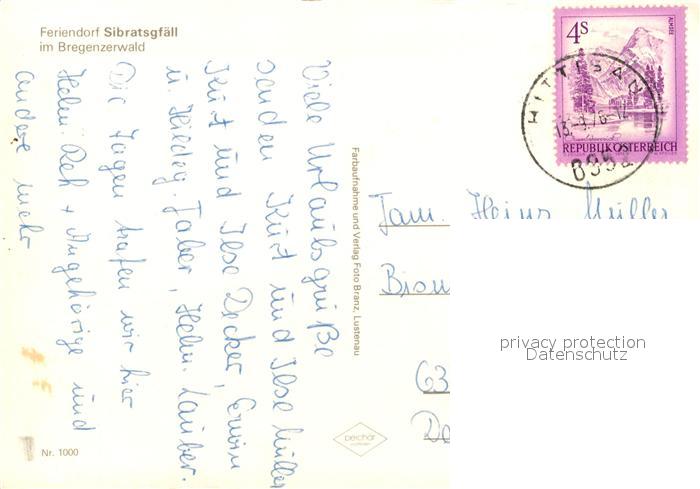 Feriendorf Sibratsgfäll
im Bregenzerwald
Viele Urlaubsgrüße
senden Kurt und Ilse Müller
Kurt und Ilse Decker, Erwin
u. Hildeg. Faber, Helm. Lauber.
Die Tagen trafen wir hier
Helm. Reh + Angehörige und
andere mehr
Nr. 1000
Farbaufnahme und Verlag Foto Branz, Lustenau
4S
ALMSEE
REPUBLIK ÖSTERREICH
HITTISAU
Fam. Heinz Müller
63
privacy protection
Datenschutz